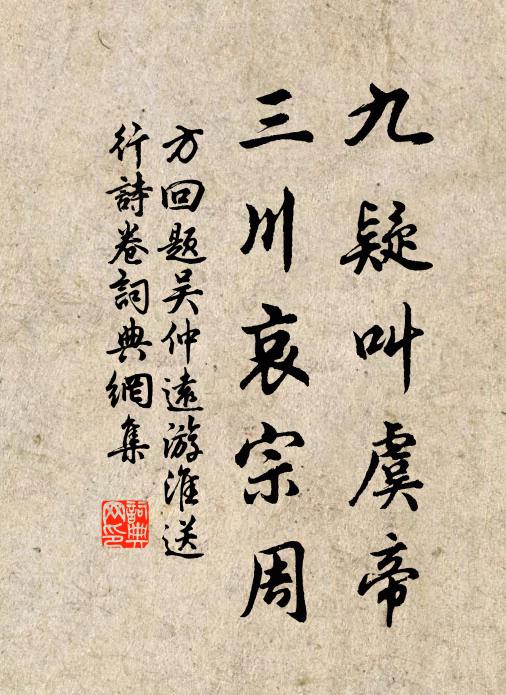 九疑叫虞帝
三川哀宗周
方回题吴仲遠游淮送
行詩卷詞典網集
詞典
网印